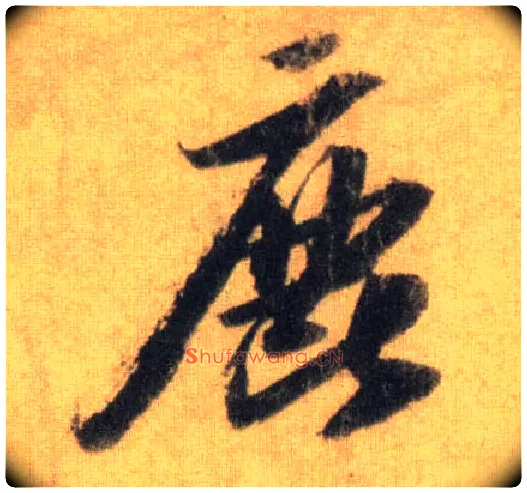 鹿
Shufawang.CN